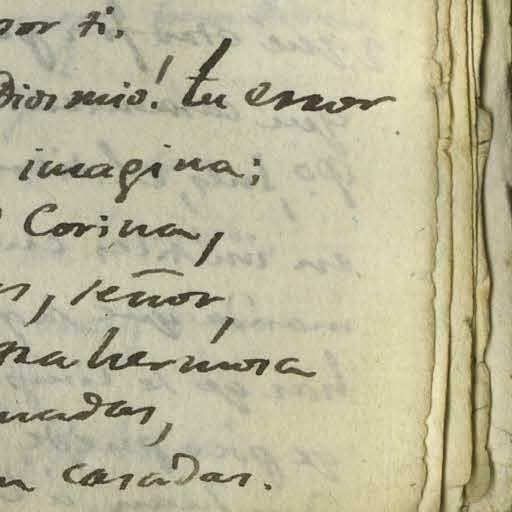 por ti.
Dios mio! tu error
imagina;
Corina,
señor,
hermosa
casadas.